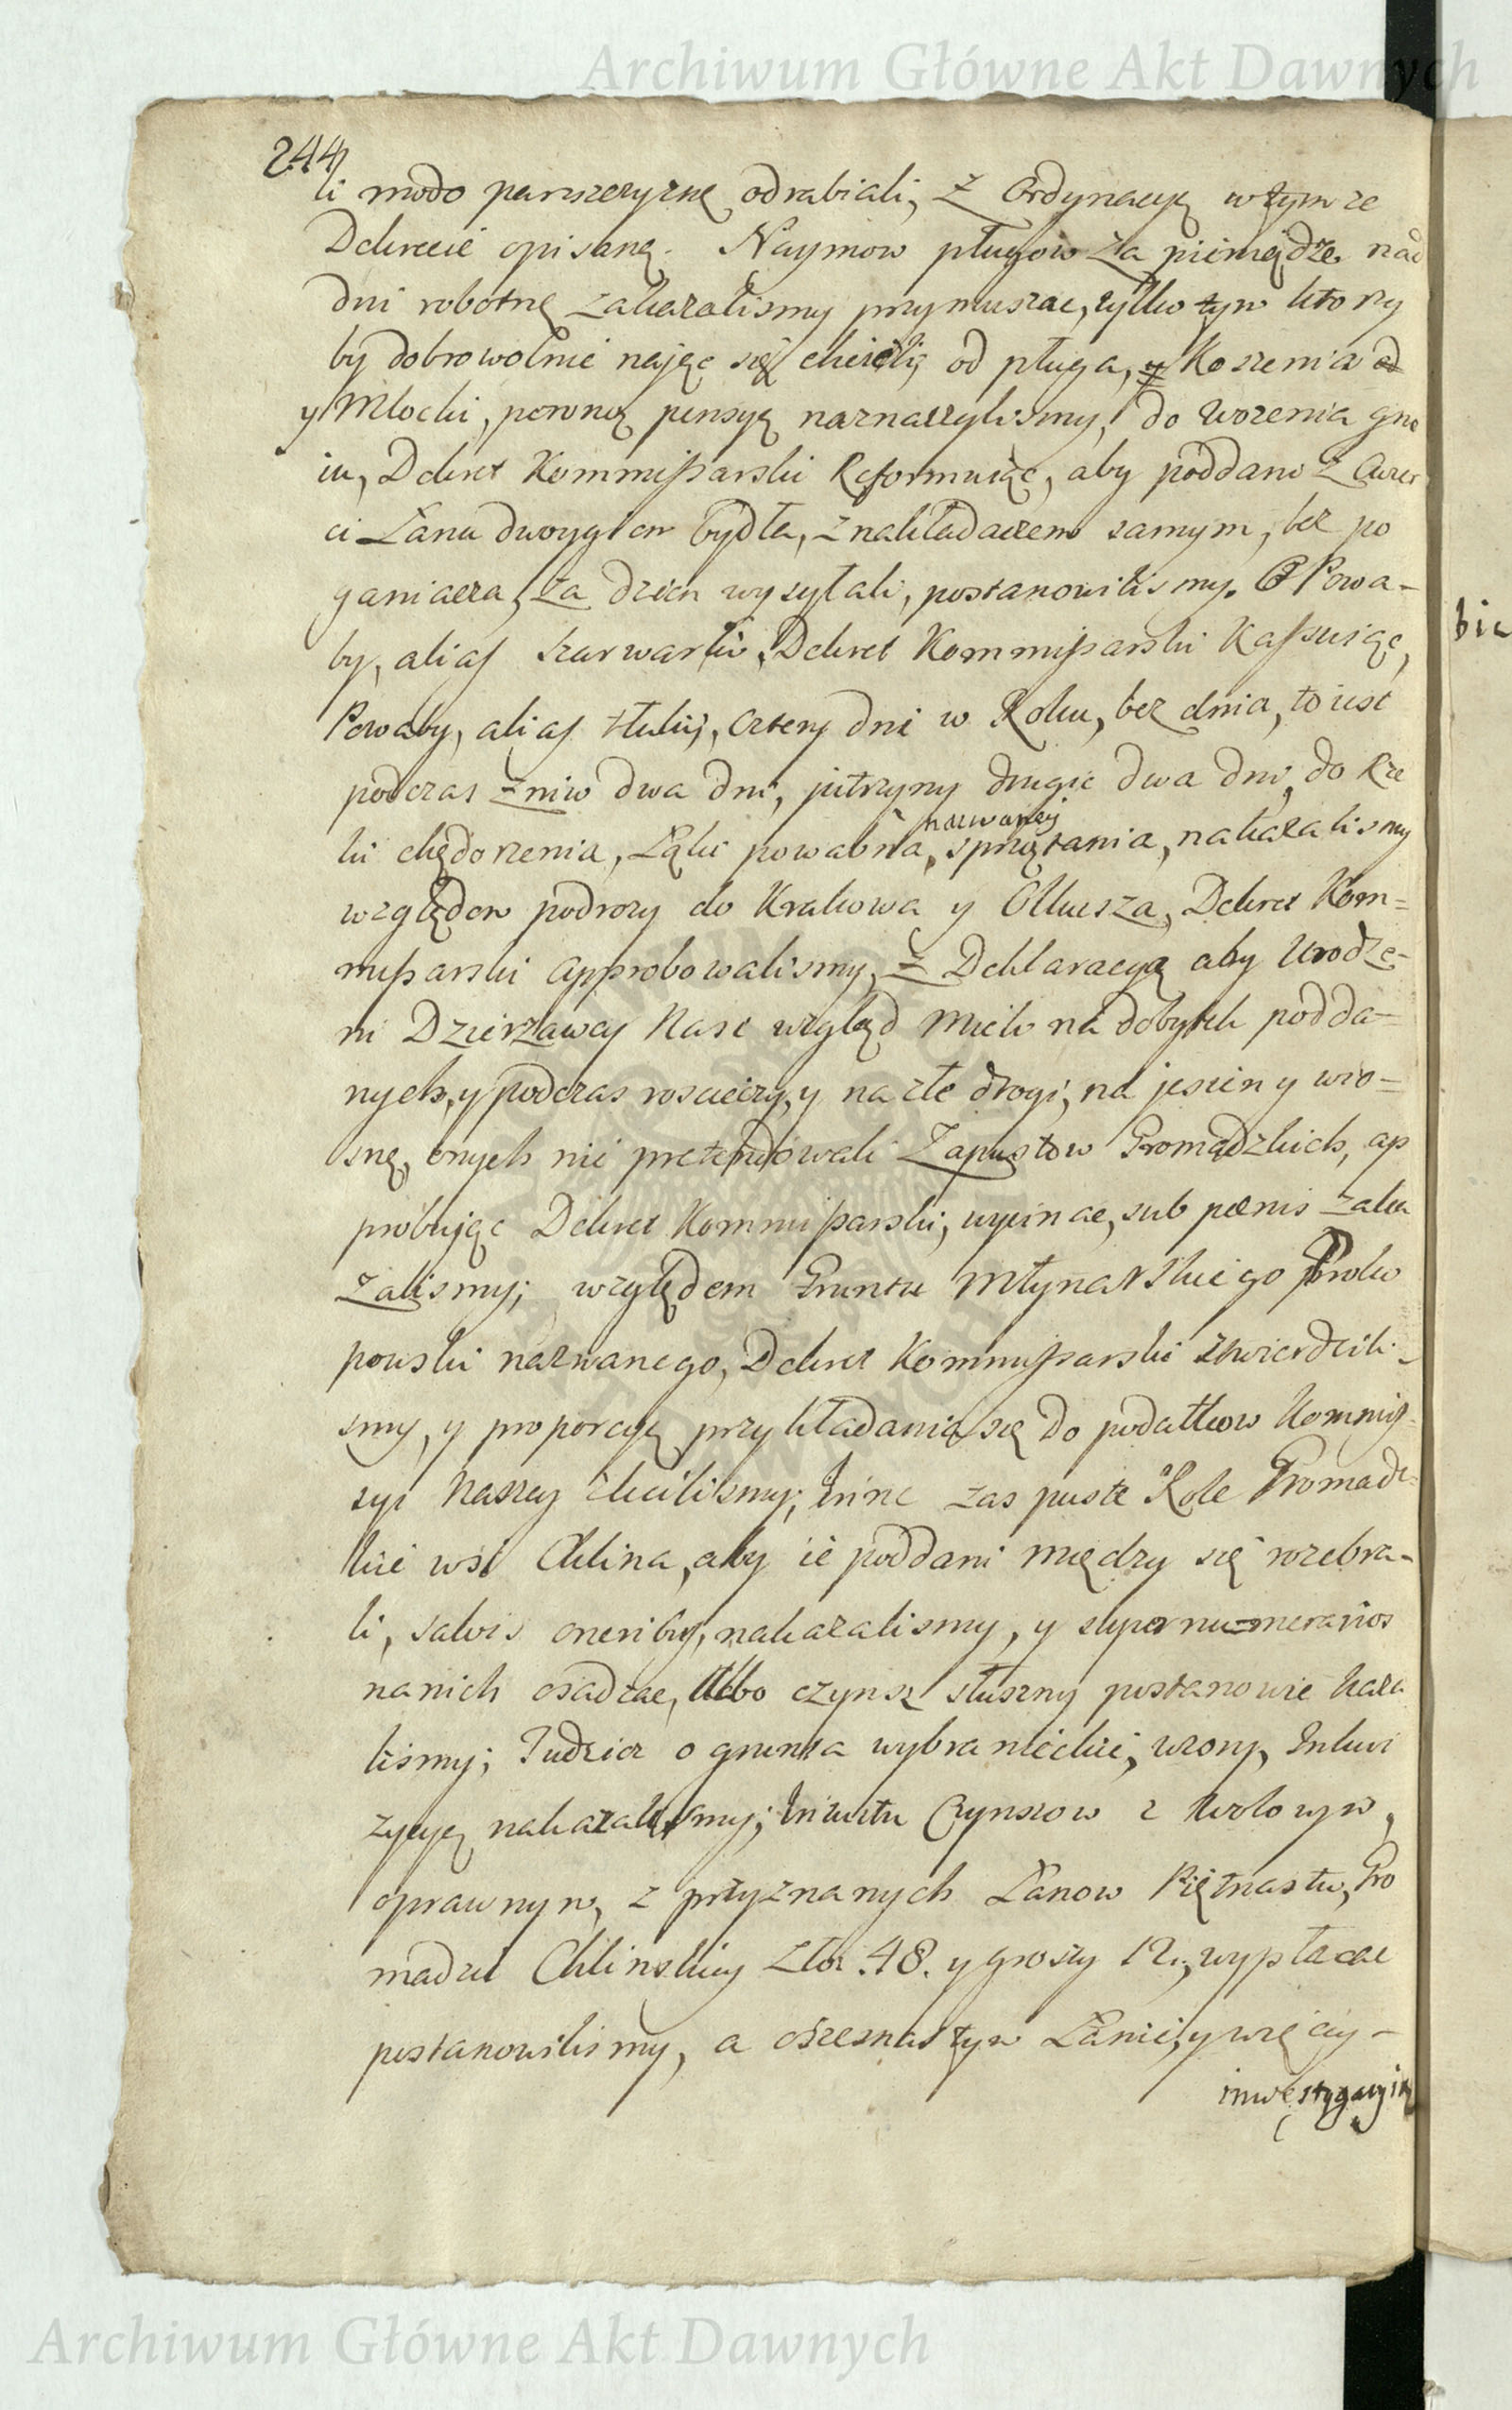 Archiwum Główne Akt Dawnych
244
li modo panszczyznę odrabiali, z Ordynacyą wtymze
Dekrecie opisaną. Naymow pługow za pieniądze nad
dni robotne zakazalismy przymuszac, tylko tym ktorzy
by dobrowolnie nająć się chcieli, od pługa, y Koszenia
y Młocki, pewną pensyą naznaczylismy, do wozenia gno
iu, Dekret Kommissarski Reformuiąc, aby poddani z cwier
ci Łanu dwoygiem bydła, z nakładaczem samym, bez po
ganiacza, za dzien wysyłali, postanowilismy. O Powa-
by, alias szarwarki, Dekret Kommissarski Kassuiąc,
Powaby, alias tłuki, cztery dni w Roku, bez dnia, to iest
podczas zniw dwa dni, jutrzyny drugie dwa dni, do Rze
ki chędozenia, Łąki powabna, nazwaney sprzątania, nakazalismy
względem podrozy do Krakowa y Olkusza, Dekret Kom=
missarski approbowalismy, z Deklaracyą aby Urodze-
ni Dzierzawcy Nasi wzgląd mieli na dobytek podda-
nych, y podczas roscieczy, y na złe drogi, na jesieni y wio=
snę, onych nie pretendowali Zapustow Gromadzkich, ap
probując Dekret Kommissarski, wycinac, sub pœnis zaka
zalismy; względem Gruntu Młynarskiego Proko
powski nazwanego, Dekret Kommissarski ztwierdzili-
smy, y proporcyą przykładania się do podatkow Kommis=
syi Naszey zlecilismy; Inne zas puste Role Gromadz=
kie wsi Chlina, aby ie poddani między się rozebra-
li, salvis oneribus, nakazalismy, y supernumerarios
na nich osadzac, albo czynsz słuszny postanowic kaza
lismy; Tudziez o grunta wybranieckie, wzony, Inkwi
zycyą nakazalismy; Czynszow z Rolowym,
oprawnym, z przyznanych Łanow Piętnastu, Gro
madzie Chlinskiey Złot. 48. y groszy 12, wypłacac
postanowilismy, a oszesnastym Łanie, y więcey-
inwestygacyią
bic
Archiwum Główne Akt Dawnych